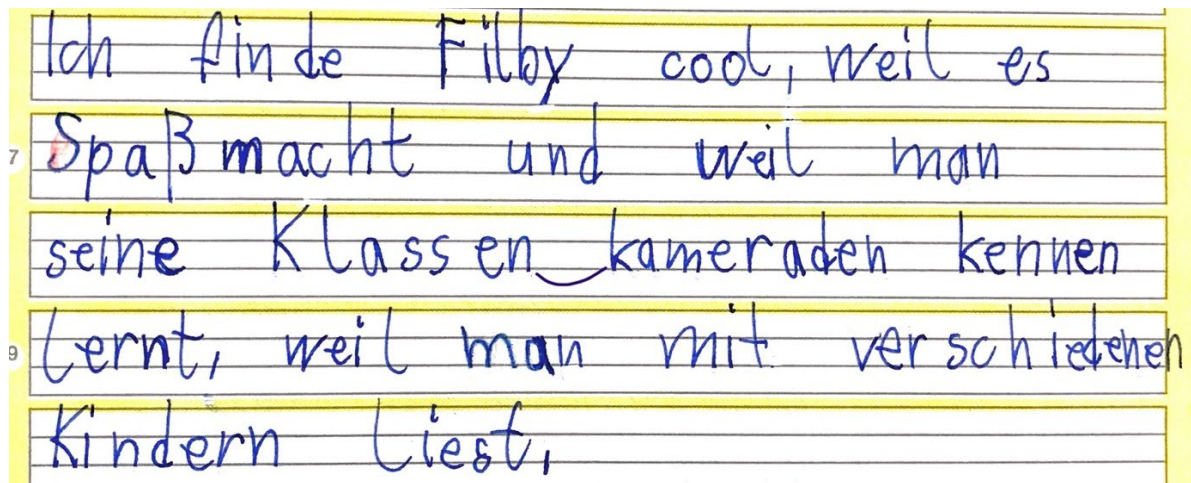 Ich finde Filby cool, weil es
7 Spaß macht und weil man
seine Klassen kameraden kennen
9 lernt, weil man mit verschiedenen
Kindern liest,